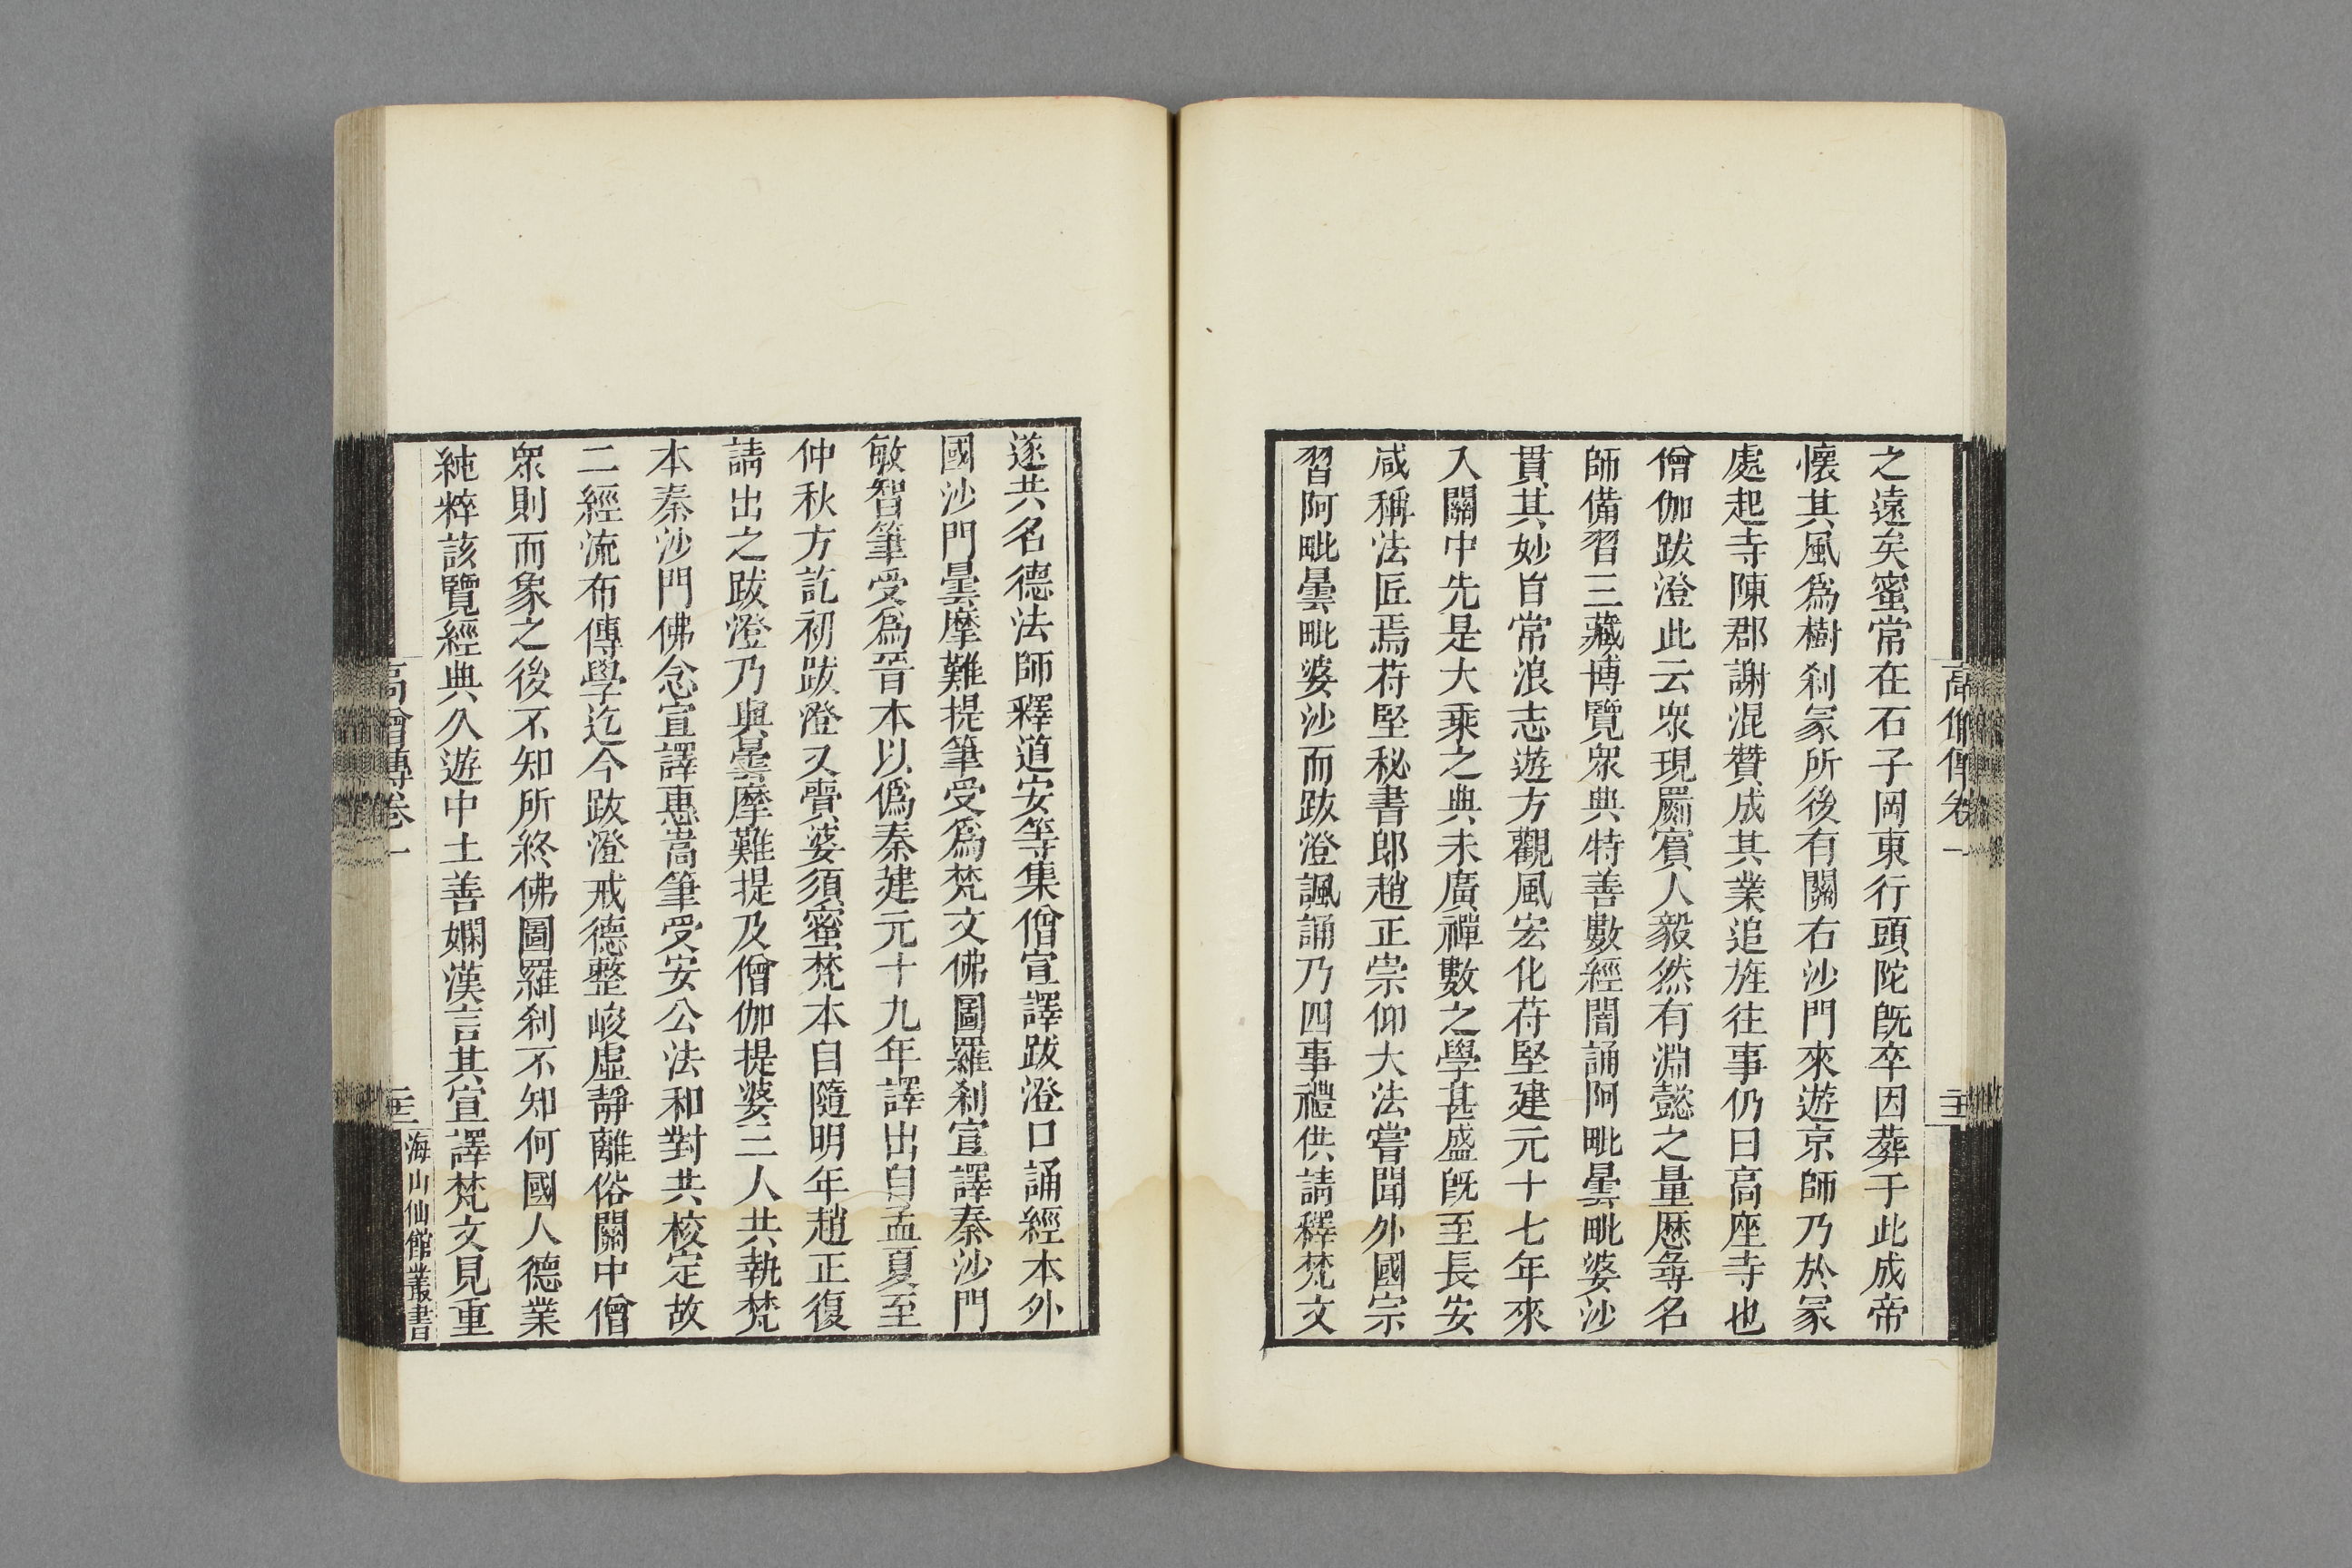 之遠矣蜜常在石子岡東行頭陀既卒因葬于此成帝
懷其風爲樹刹冢所後有關右沙門來遊京師乃於冢
處起寺陳郡謝混贊成其業追旌往事仍曰高座寺也
僧伽跋澄此云眾現罽賓人毅然有淵懿之量歷尋名
師備習三藏博覽眾典特善數經闇誦阿毗曇毗婆沙
貫其妙旨常浪志遊方觀風宏化苻堅建元十七年來
入關中先是大乘之典未廣禪數之學甚盛既至長安
咸稱法匠焉苻堅秘書郎趙正崇仰大法嘗聞外國宗
習阿毗曇毗婆沙而跋澄諷誦乃四事禮供請釋梵文
遂共名德法師釋道安等集僧宣譯跋澄口誦經本外
國沙門曇摩難提筆受爲梵文佛圖羅刹宣譯秦沙門
敏智筆受爲晉本以僞秦建元十九年譯出自孟夏至
仲秋方訖初跋澄又賷婆須蜜梵本自隨明年趙正復
請出之跋澄乃與曇摩難提及僧伽提婆三人共執梵
本秦沙門佛念宣譯惠嵩筆受安公法和對共校定故
二經流布傳學迄今跋澄戒德整峻虛靜離俗關中僧
眾則而象之後不知所終佛圖羅刹不知何國人德業
純粹該覽經典久遊中土善嫻漢言其宣譯梵文見重
高僧傳卷一
海山仙館叢書